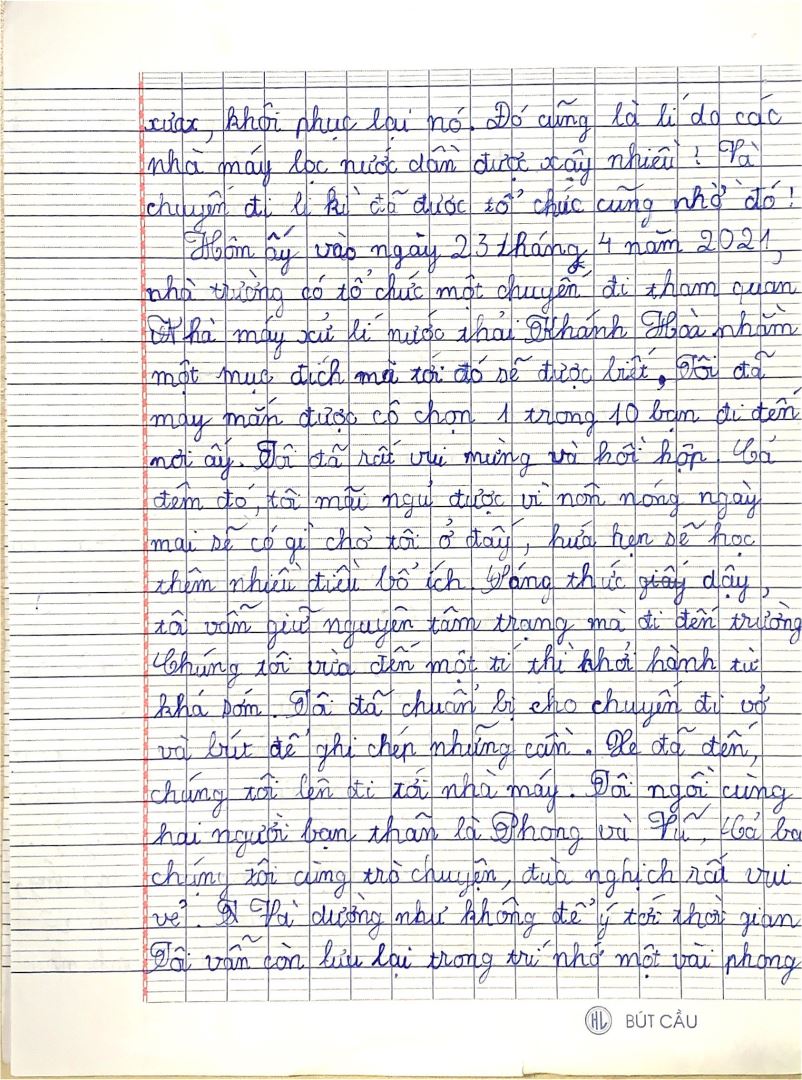 xưax, khôi phục lại nó. Đó cũng là lí do các
nhà máy lọc nước dần được xây nhiều! Và
chuyến đi li kì đã được tổ chức cũng nhờ đó!
Hôm ấy vào ngày 23 tháng 4 năm 2021,
nhà trường có tổ chức một chuyến đi tham quan
Nhà máy xử lí nước thải Khánh Hoà nhằm
một mục đích mà tới đó sẽ được biết. Tôi đã
may mắn được cô chọn 1 trong 10 bạn đi đến
nơi ấy. Tôi đã rất vui mừng và hồi hộp. Cả
đêm đó, tôi mãi ngủ được vì nôn nóng ngày
mai sẽ có gì chờ tôi ở đấy, hứa hẹn sẽ học
thêm nhiều điều bổ ích. Sáng thức giấy dậy,
tôi vẫn giữ nguyên tâm trạng mà đi đến trường
Chúng tôi vừa đến một tí thì khởi hành từ
khá sớm. Tôi đã chuẩn bị cho chuyến đi vở
và bút để ghi chép những cần. Xe đã đến,
chúng tôi lên đi tới nhà máy. Tôi ngồi cùng
hai người bạn thân là Phong và Vũ, Cả ba
chúng tôi cùng trò chuyện, đùa nghịch rất vui
vẻ. Và dường như không để ý tới thời gian
Tôi vẫn còn lưu lại trong trí nhớ một vài phong
HL BÚT CẦU